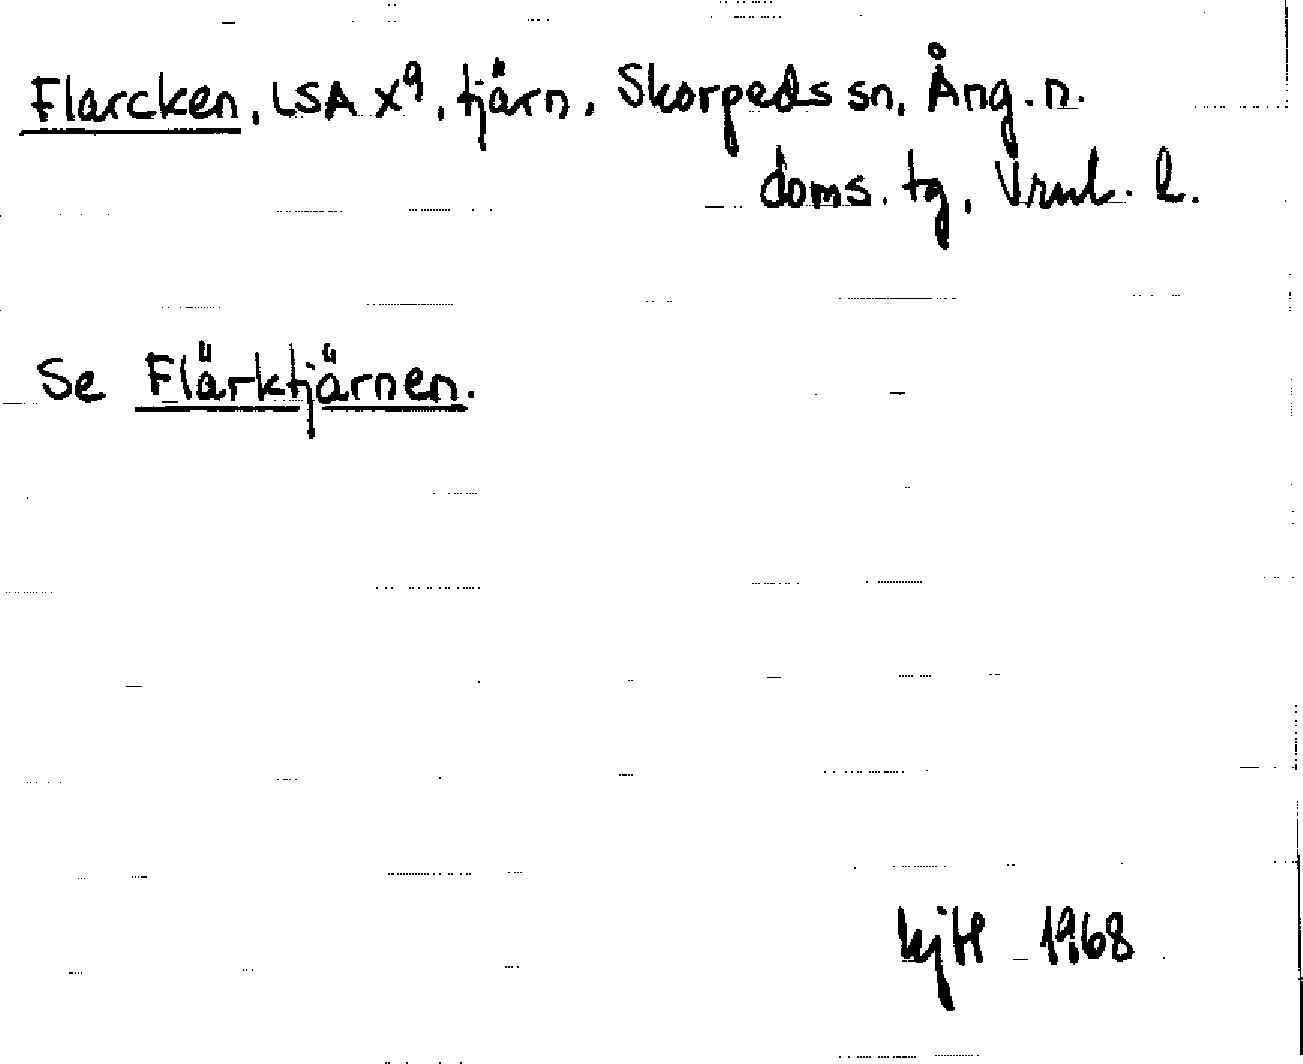 Flarcken, LSA X⁹, tjärn, Skorpeds sn, Ång. n.
doms. tg, Vrnl. l.
Se Flärktjärnen.
1968